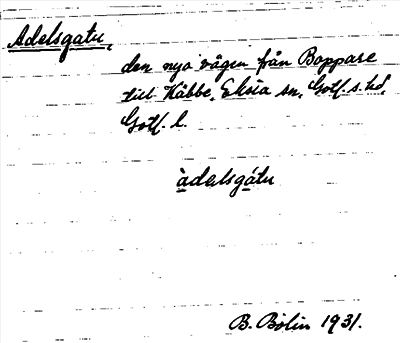 Adelsgatu,
den nya vägen från Boppare
till Käbbe, Eksta sn, Gotl. s. hd,
Gotl. l.
àdalsgátu
B. Bolin 1931.